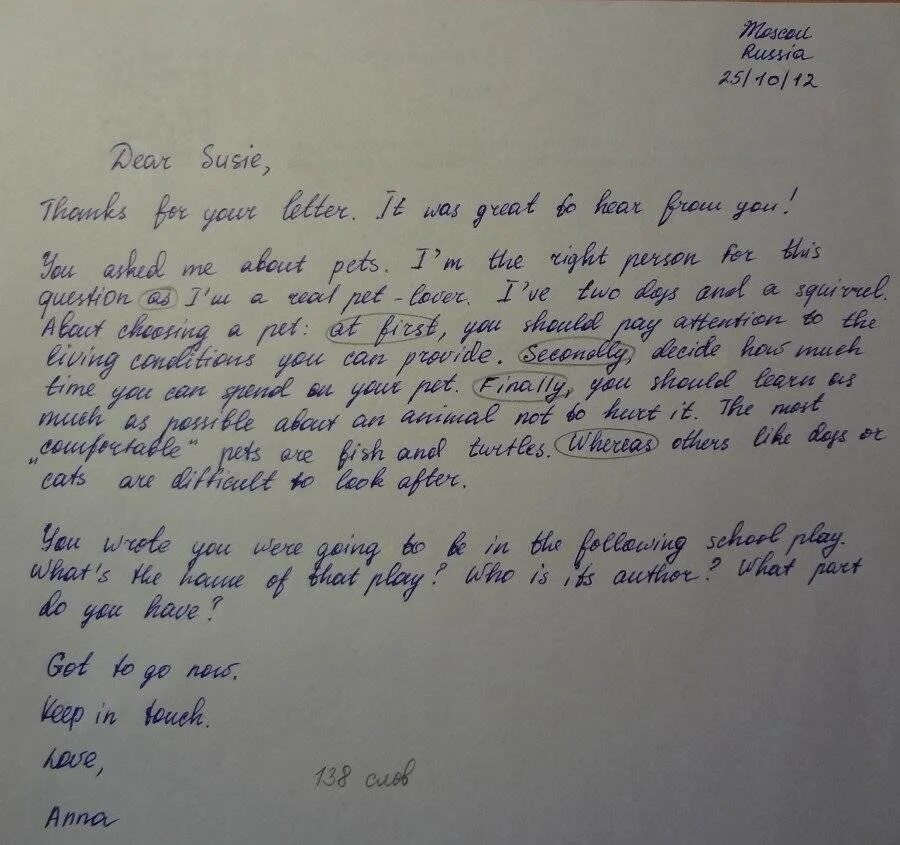 Moscow
Russia
25/10/12
Dear Susie,
Thanks for your letter. It was great to hear from you!
You asked me about pets. I'm the right person for this
question as I'm a real pet-lover. I've two dogs and a squirrel.
About choosing a pet: at first, you should pay attention to the
living conditions you can provide. Secondly, decide how much
time you can spend on your pet. Finally, you should learn as
much as possible about an animal not to hurt it. The most
„comfortable" pets are fish and turtles. Whereas others like dogs or
cats are difficult to look after.
You wrote you were going to be in the following school play.
What's the name of that play? Who is its author? What part
do you have?
Got to go now.
Keep in touch.
Love,
138 слов
Anna